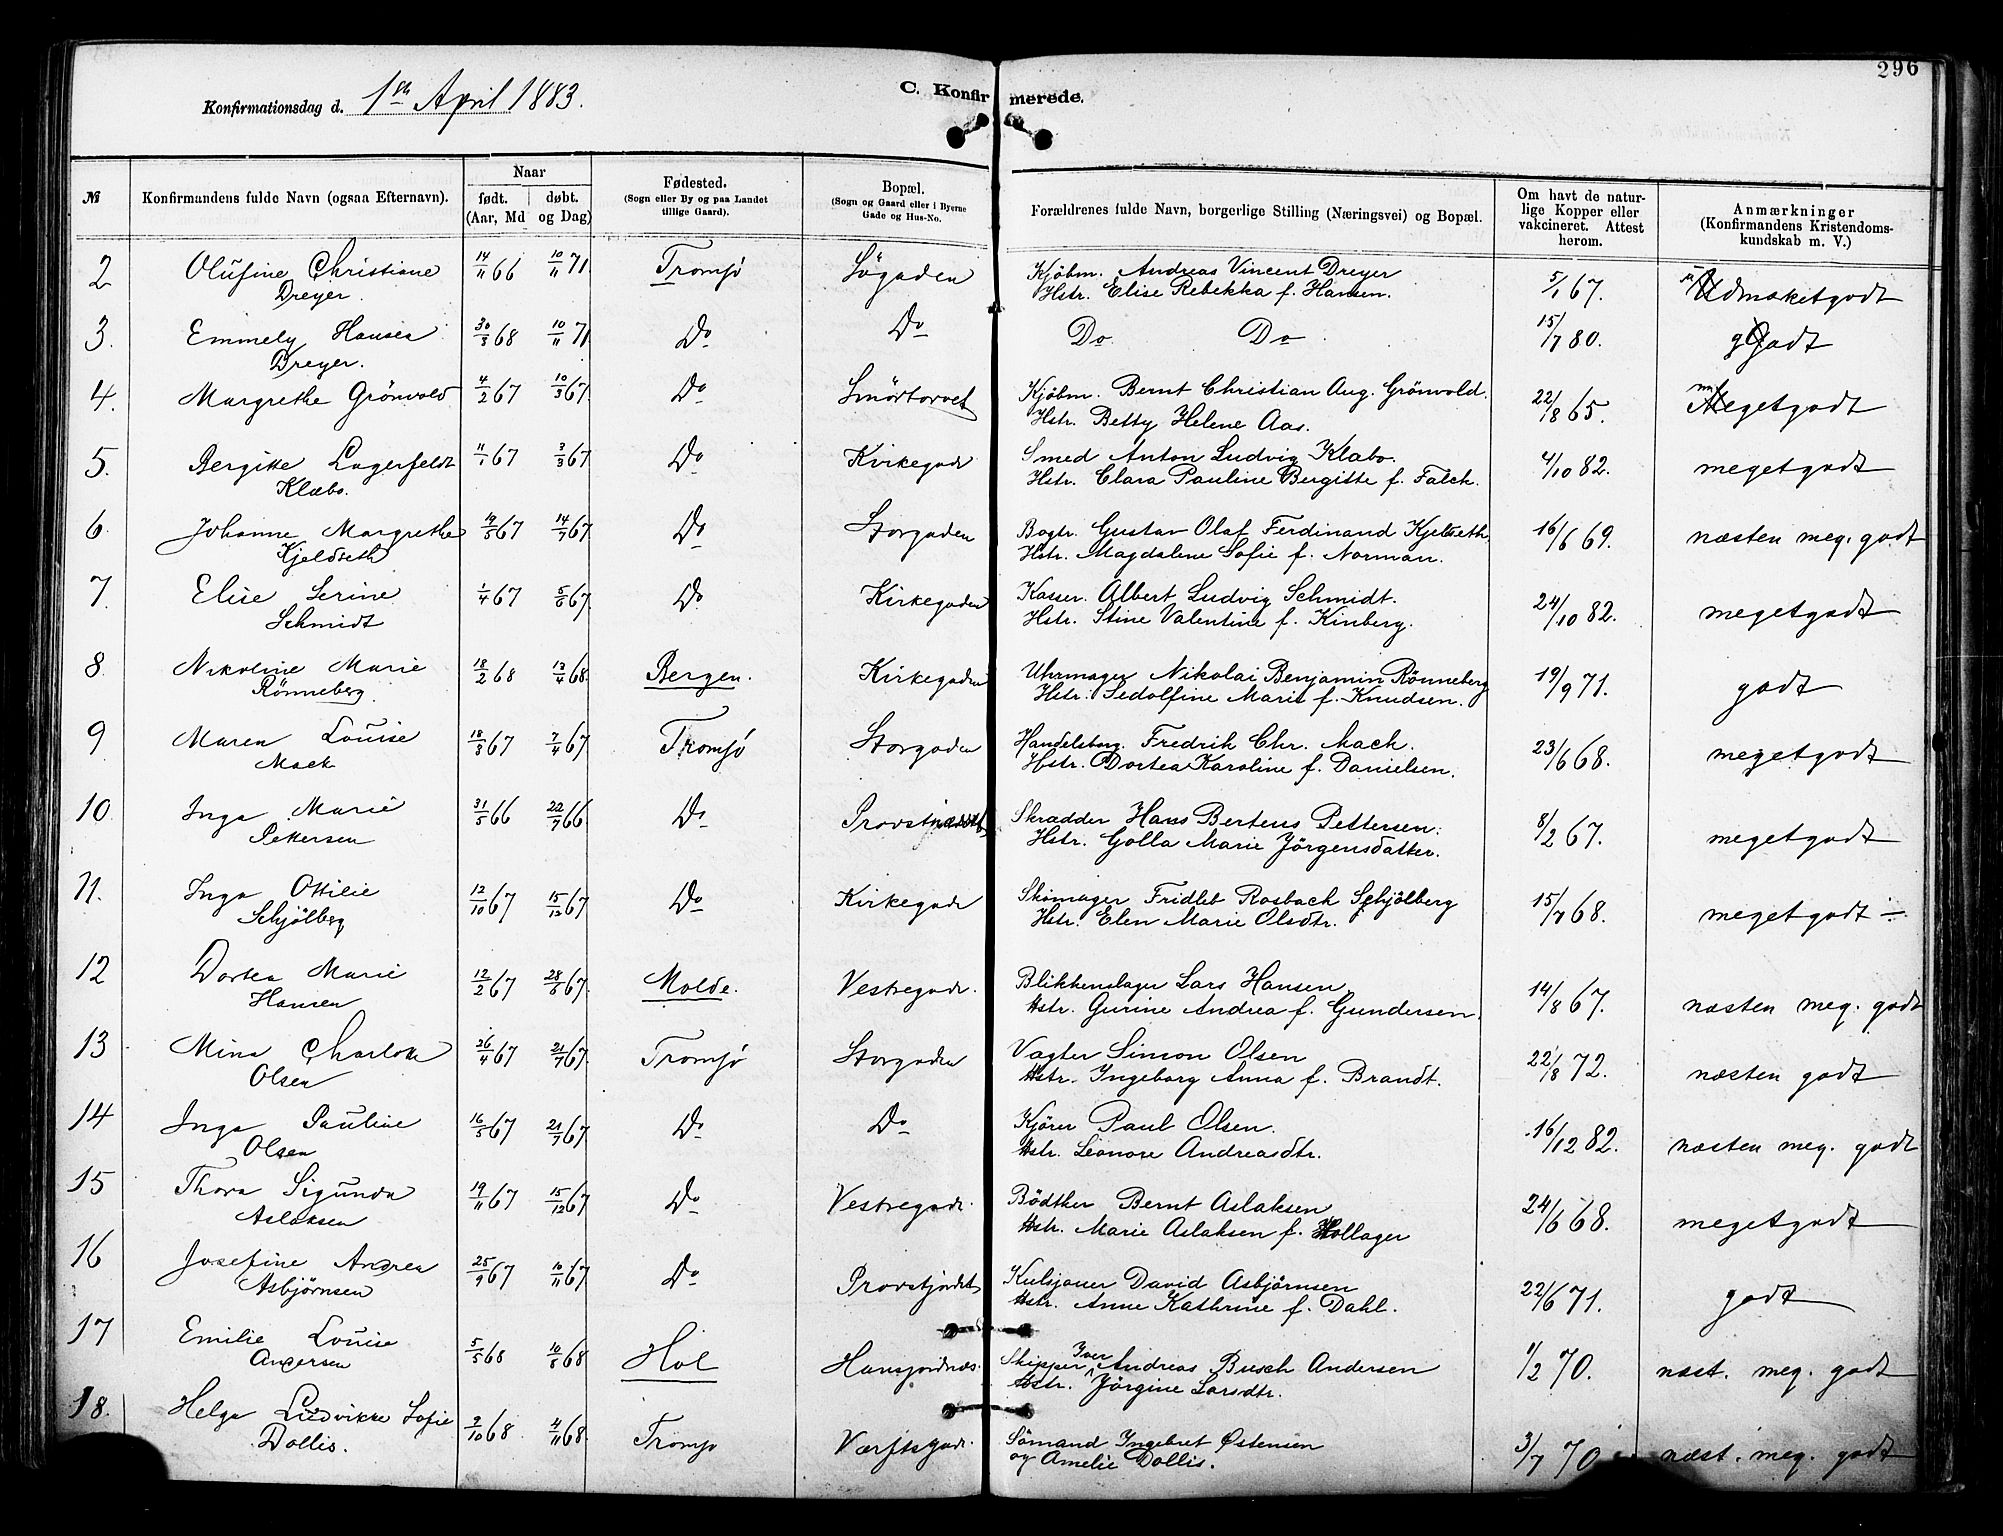 296
Konfirmationsdag d. 1ste April 1883.
C. Konfirmerede.
№ Konfirmandens fulde Navn (ogsaa Efternavn). Naar født. (Aar, Md døbt. og Dag) Fødested. (Sogn eller By og paa Landet tillige Gaard). Bopæl. (Sogn og Gaard eller i Byerne Gade og Hus-No. Forældrenes fulde Navn, borgerlige Stilling (Næringsvei) og Bopæl. Om havt de naturlige Kopper eller vakcineret. Attest herom. Anmærkninger (Konfirmandens Kristendomskundskab m. V.)
2 Olufine Christiane 14/11 66 10/11 71 Tromsø Søgaden Kjøbm. Andreas Vincent Dreyer 5/1 67. Udmærketgodt
Dreyer. Hstr. Elise Rebekka f. Hansen.
3. Emmely Hansen 30/3 68 10/11 71 Do Do Do Do 15/7 80. godt
Dreyer.
4. Margrethe Grönvold 4/2 67 10/3 67 Do Smörtorvet Kjöbm. Bernt Christian Aug. Grönvold. 22/8 65. Megetgodt
Hstr. Betty Helene Aas.
5. Bergitte Lagerfeldt 11/1 67 3/3 67 Do Kirkegade Smed Anton Ludvig Klæbo. 4/10 82. megetgodt
Klæbo. Hstr. Clara Pauline Bergitte f. Falch.
6. Johanne Margrethe 19/5 67 14/7 67 Do Storgaden Bogtr. Gustav Olaf Ferdinand Kjeldseth, 16/6 69. næsten meg. godt
Kjeldseth Hstr. Magdalene Sofie f. Norman.
7. Elise Serine 1/4 67 5/6 67 Do Kirkegaden Kasser. Albert Ludvig Schmidt. 24/10 82. megetgodt
Schmidt Hstr. Stine Valentine f. Kinberg.
8 Nikoline Marie 18/2 68 13/4 68 Bergen. Kirkegaden Uhrmager Nikolai Benjamin Rönneberg 19/9 71. godt
Rönneberg Hstr. Sedolfine Marie f. Knudsen.
9 Maren Louise 18/3 67 7/4 67 Tromsø Storgaden Handelsborg. Fredrik Chr. Mack. 23/6 68. megetgodt
Mack Hstr. Dortea Karoline f. Danielsen.
10 Inga Marie 31/5 66 22/7 66 Do Skrædder Hans Bertens Pettersen. 8/2 67. megetgodt
Pettersen Hstr. Golla Marie Jörgensdatter.
11. Inga Ottilie 12/10 67 15/12 67 Do Kirkegade Skomager Fridlet Rosbach Schjölberg 15/7 68. megetgodt ÷
Schjölberg Hstr. Elen Marie Olsdtr.
12 Dortea Marie 12/2 67 28/6 67 Molde. Vestregade. Blikkenslager Lars Hansen 14/8 67. næsten meg. godt
Hansen Hstr. Gurine Andrea f. Gundersen.
13 Mina Charlotte 26/4 67 21/7 67 Tromsø Storgaden Vagter Simon Olsen 22/8 72. næsten godt
Olsen Hstr. Ingeborg Anna f. Brandt.
14 Inga Pauline 16/5 67 21/7 67 Do Do Kjører Paul Olsen. 16/12 82. næsten meg. godt
Olsen Hstr. Leonore Andreasdtr.
15 Thora Sigunda 19/11 67 15/12 67 Do Vestregade. Bödtker Bernt Aslaksen 24/6 68. megetgodt
Aslaksen Hstr. Marie Aslaksen f. Hollager
16 Josefine Andrea 25/9 67 10/11 67 Do Provstjordet David Asbjörnsen 22/6 71. godt
Asbjørnsen Hstr. Anne Kathrine f. Dahl.
17 Emilie Louise 5/5 68 10/5 68 Hol Hansjordnæs. Skipper Iver Andreas Busch Andersen 1/2 70. næst. meg. godt
Andersen Hstr. Jörgine Larsdtr.
18. Helga Ludvikke Sofie 2/10 68 4/11 68 Tromsø Værftsgade. Sömand Ingebret Østensen 3/7 70 næst. meg. godt
Dollis. og Amelie Dollis.